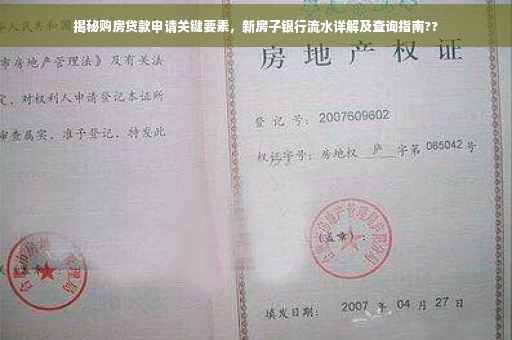 揭秘购房贷款申请关键要素，新房子银行流水详解及查询指南??
华人民共和国
市房地产管理法》及有关规
定，对权利人申请登记本证所
审查属实，准予登记，特发此
房地产权证
登记号：2007609602
权证字号：房地权 庐 字第 085042 号
(盖章)：
填发日期：2007 年 04 月 27 日